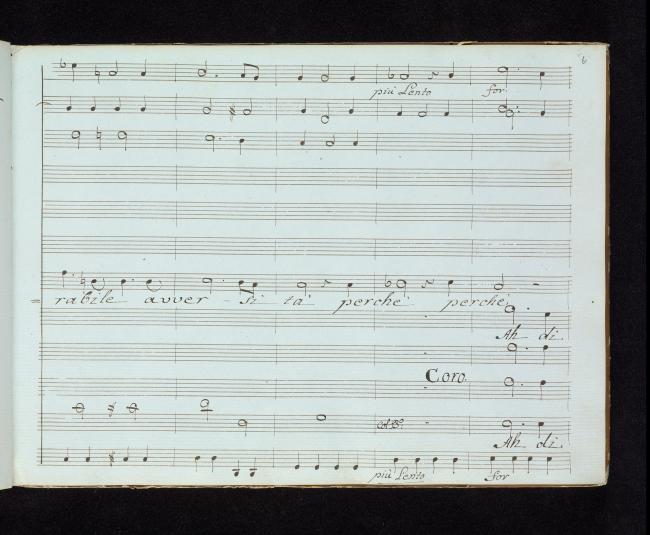 6
più Lento for
rabile avver - si tà perchè perchè
Ah di
Coro
Ah di
più Lento for